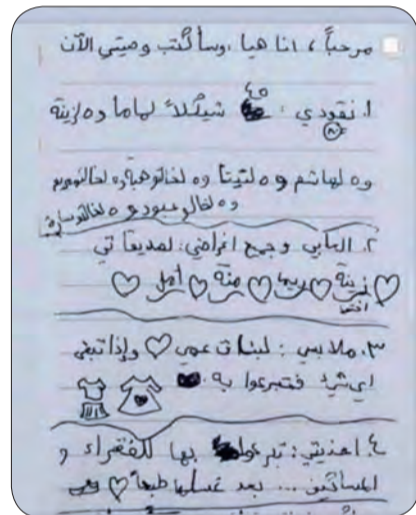 مرحباً ، انا هيا ، وسأكتب وصيتي الآن
٤٥
١. نقودي : شيكلاً لماما و٥ لزينة
و٥ لهاشم و٥ لتيتا و٥ لخالتو هبة و٥ لخالتو مريم
و٥ لخالو عبود و٥ لخالتو سارة
٢. العابي وجميع اغراضي: لصديقاتي
زينة ريما منة أمل
اختي
٣. ملابسي : لبنات عمي وإذا تبقى
اي شيء فتبرعوا به.
٤. احذيتي: تبرعوا بها للفقراء و
المساكين ... بعد غسلها طبعاً